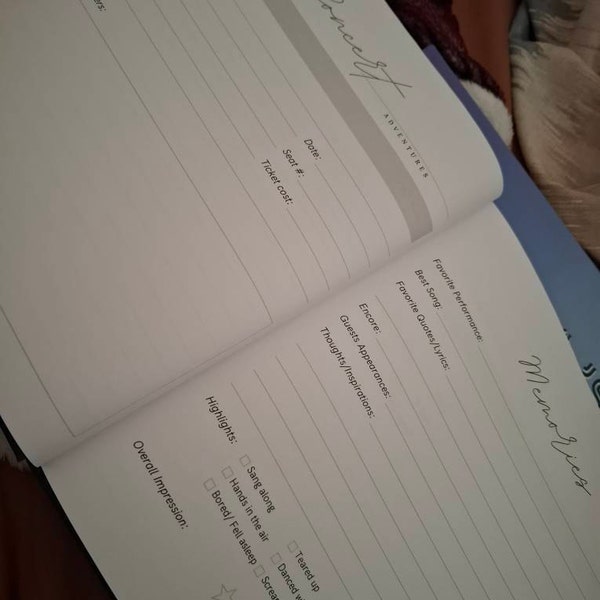 Concert
ADVENTURES
Date:
Seat #:
Ticket cost:
Memories
Favorite Performance:
Best Song:
Favorite Quotes/Lyrics:
Encore:
Guests Appearances:
Thoughts/Inspirations:
Highlights:
Sang along
Teared up
Hands in the air
Danced
Bored/ Fell asleep
Overall Impression: